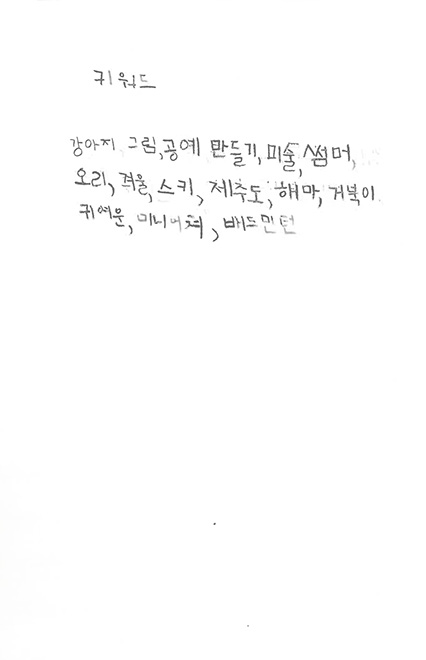 귀워드
강아지, 그림, 공예 만들기, 미술, 썸머,
오리, 겨울, 스키, 제주도, 해마, 거북이
귀여운, 미니어쳐, 배드민턴